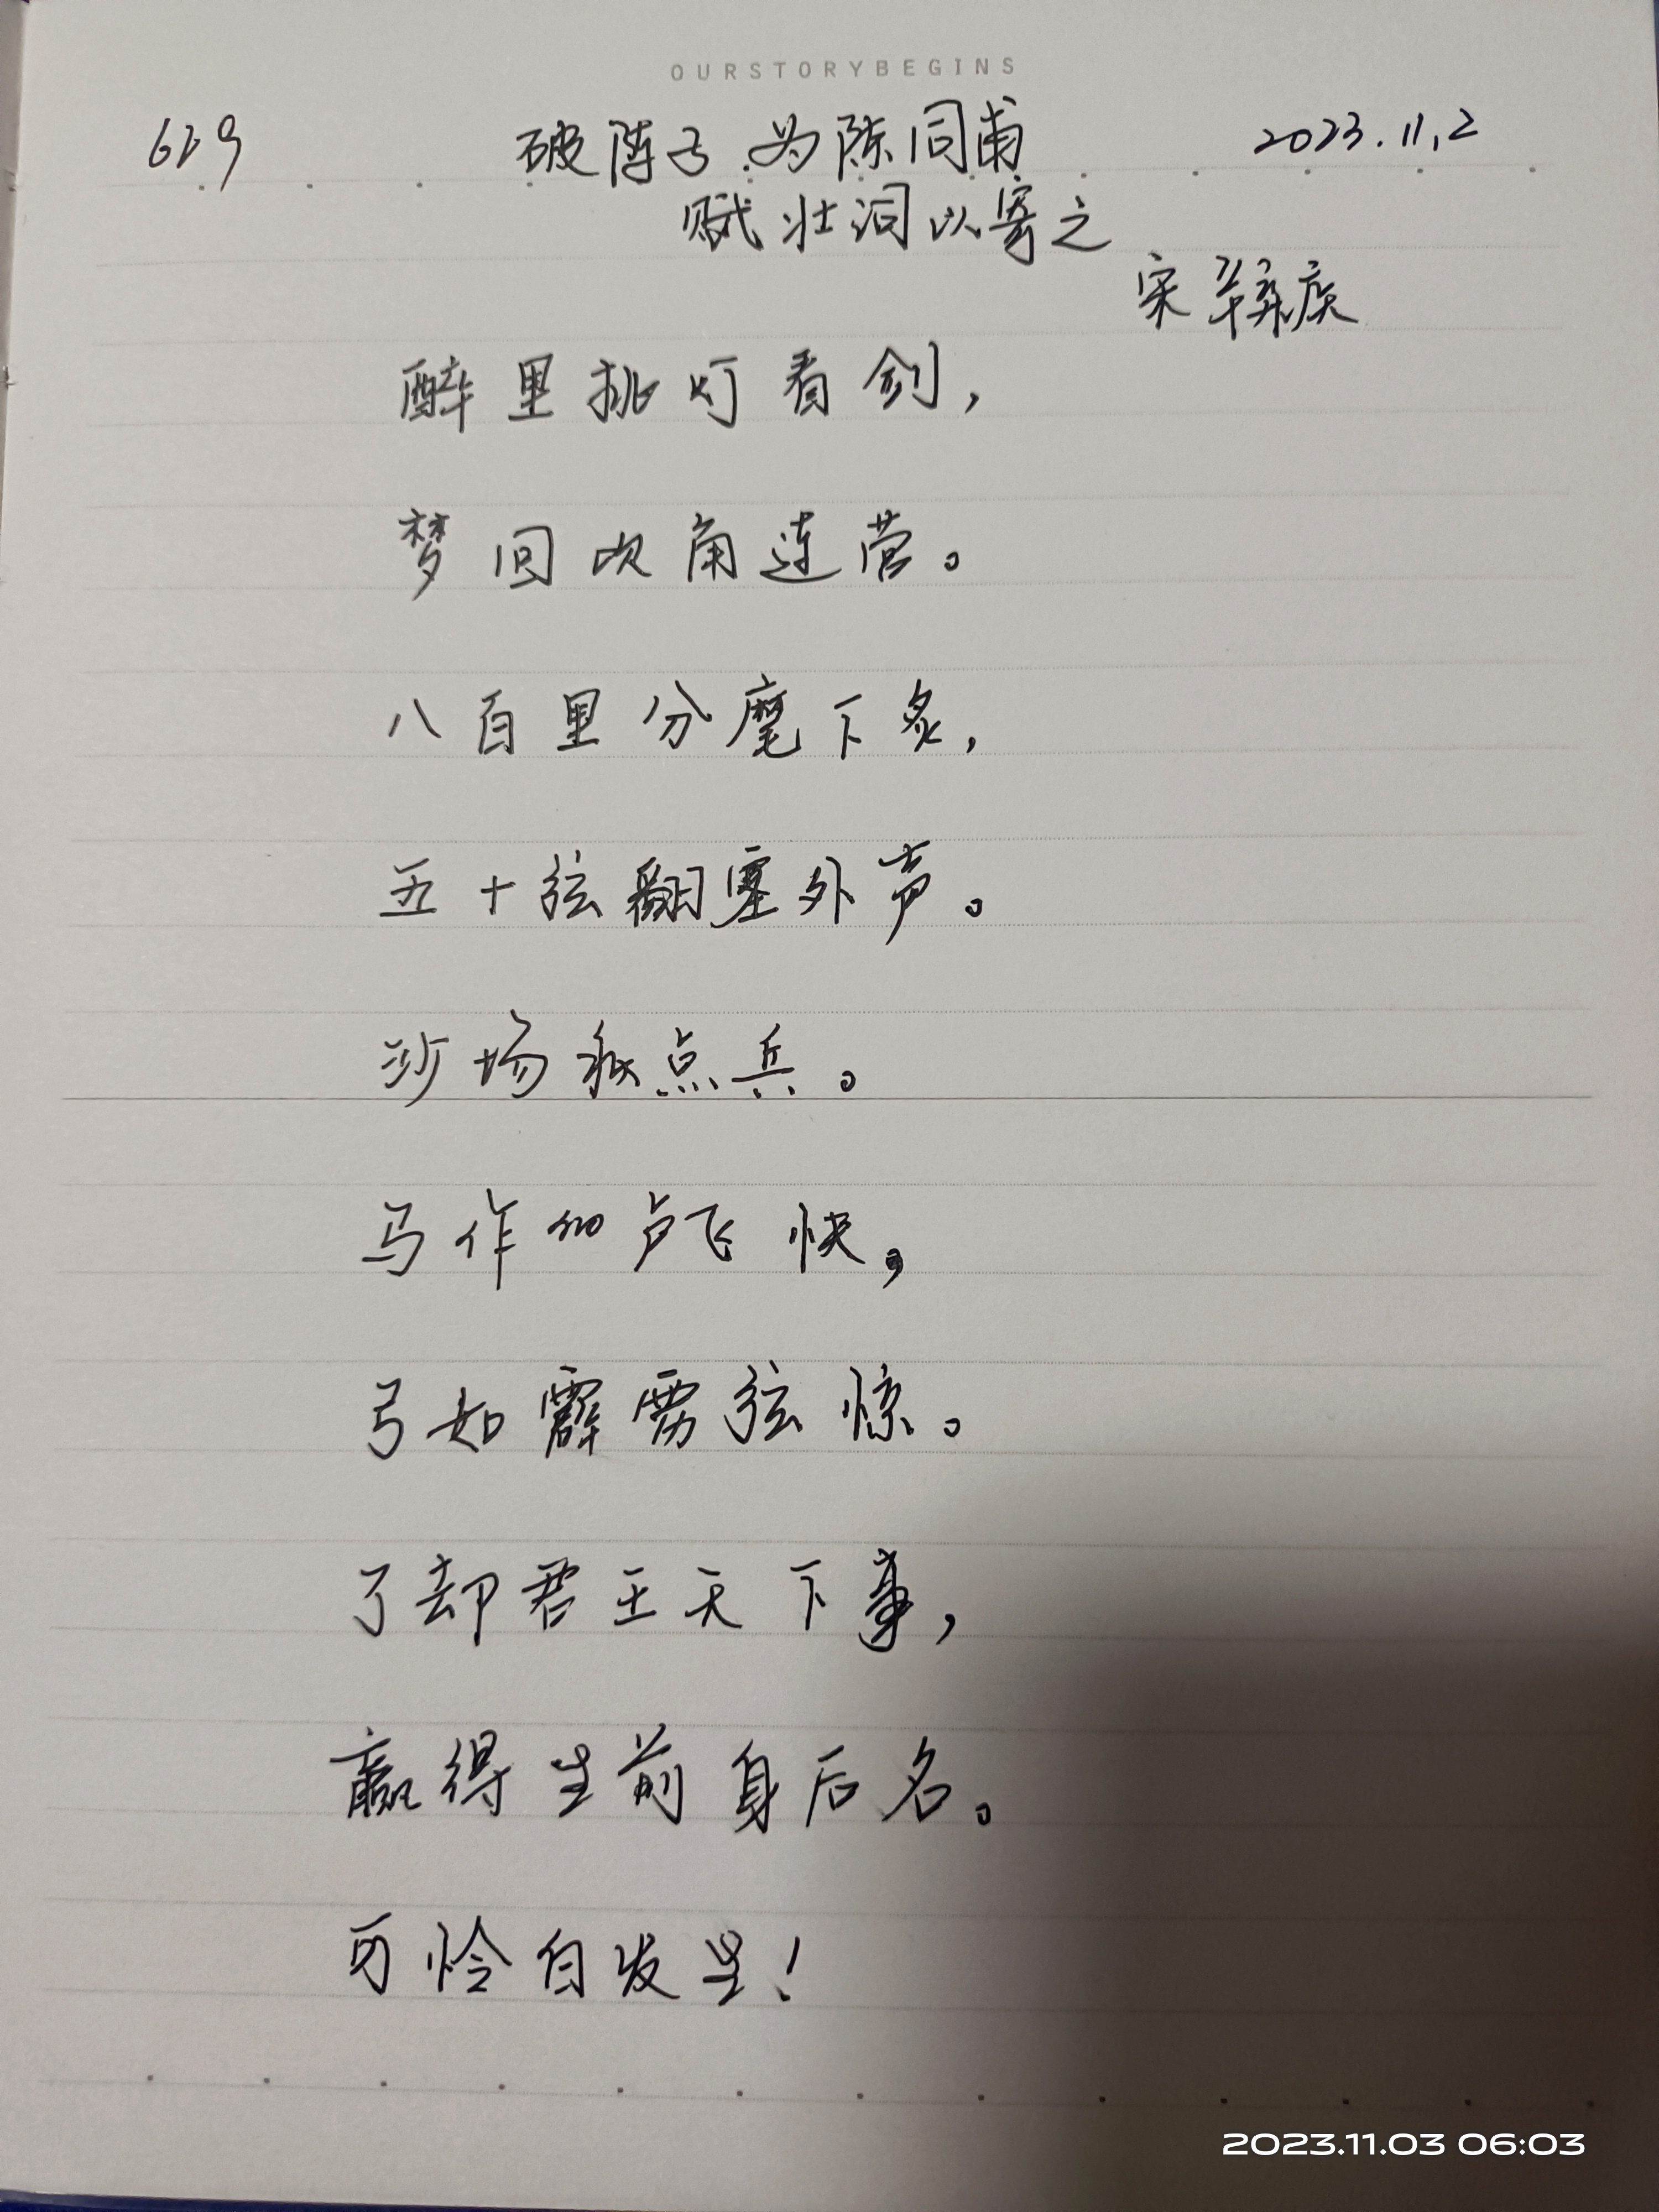 OURSTORYBEGINS
629 破阵子.为陈同甫 2023.11.2
赋壮词以寄之
宋 辛弃疾
醉里挑灯看剑,
梦回吹角连营。
八百里分麾下炙,
五十弦翻塞外声。
沙场秋点兵。
马作的卢飞快,
弓如霹雳弦惊。
了却君王天下事,
赢得生前身后名。
可怜白发生!
2023.11.03 06:03